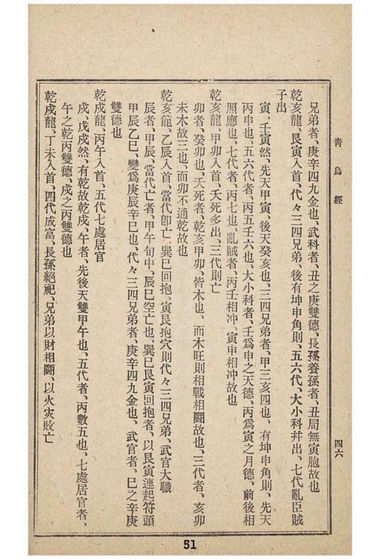 青烏經
四六
兄弟者、庚辛四九金也、武科者、丑之庚雙德、長孫養孫者、丑局無寅胞故也
乾亥龍、艮寅入首、代々三四兄弟、後有坤申角則、五六代、大小科幷出、七代亂臣賊
子出
寅、壬寅然、先天甲寅、後天癸亥也、三四兄弟者、甲三亥四也、有坤申角則、先天
丙申也、五六代者、丙五壬六也、大小科者、壬爲申之天德、丙爲寅之月德、前後相
照應也、七代者、丙七也、亂賊者、丙壬相冲、寅申相冲故也
乾亥龍、甲卯入首、夭死多出、三代則亡
卯者、癸卯也、夭死者、乾亥甲卯、皆木也、而木旺則相戰相鬪故也、三代者、亥卯
未木故三也、而卯不通乾故也
乾亥龍、乙辰入首、當代卽亡、巽巳回抱、寅艮抱穴則代々三四兄弟、武官大職
辰者、甲辰、當代亡者、甲午旬中、辰巳空亡也、巽巳艮寅回抱者、以艮寅連起符頭
甲辰乙巳、變爲庚辰辛巳也、代々三四兄弟者、庚辛四九金也、武官者、巳之辛庚
雙德也
乾戌龍、丙午入首、五代七處居官
戌、戊戌然、有乾故乾戌、午者、先後天雙甲午也、五代者、丙數五也、七處居官者、
午之乾丙雙德也、戌之丙雙德也
乾戌龍、丁未入首、四代成富、長孫絕祀、兄弟以財相鬪、以火災敗亡
51